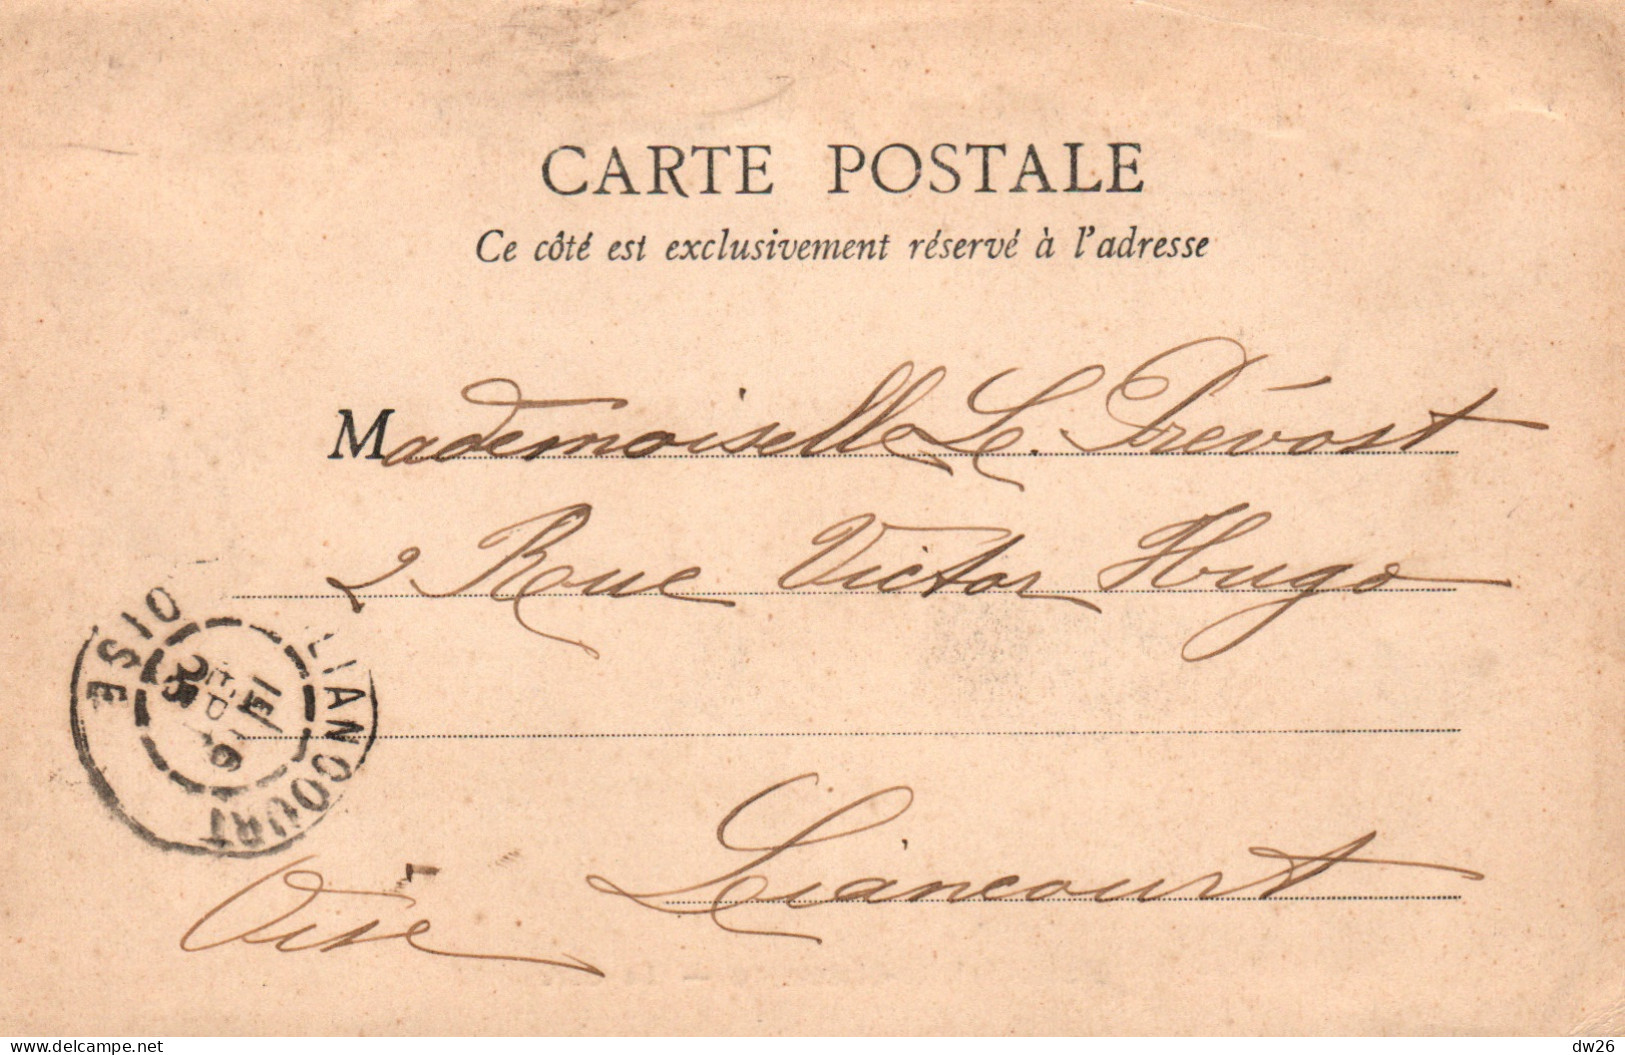 CARTE POSTALE
Ce côté est exclusivement réservé à l'adresse
Mademoiselle Le Prévost
2 Rue Victor Hugo
LIANCOURT
OISE
Liancourt
Oise
delcampe.net
dw26